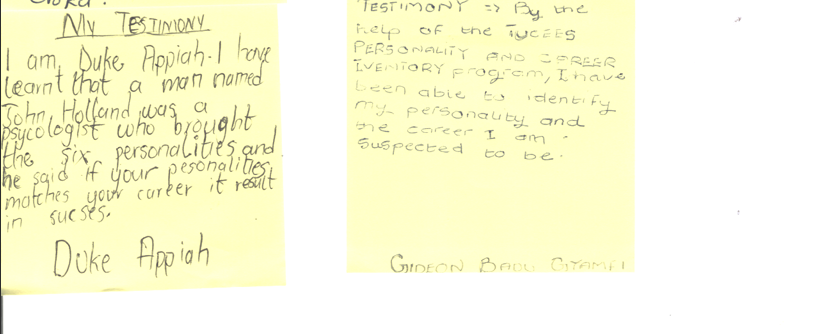 My TESTIMONY
I am Duke Appiah. I have
learnt that a man named
John Holland was a
psycologist who brought
the six personalities and
he said if your pesonalities
matches your career it result
in sucses.
Duke Appiah
TESTIMONY => By the
help of the TYCEES
PERSONALITY AND CAREER
IVENTORY program, I have
been able to identify
my personality and
the career I am
suspected to be.
GIDEON BADU GYAMFI